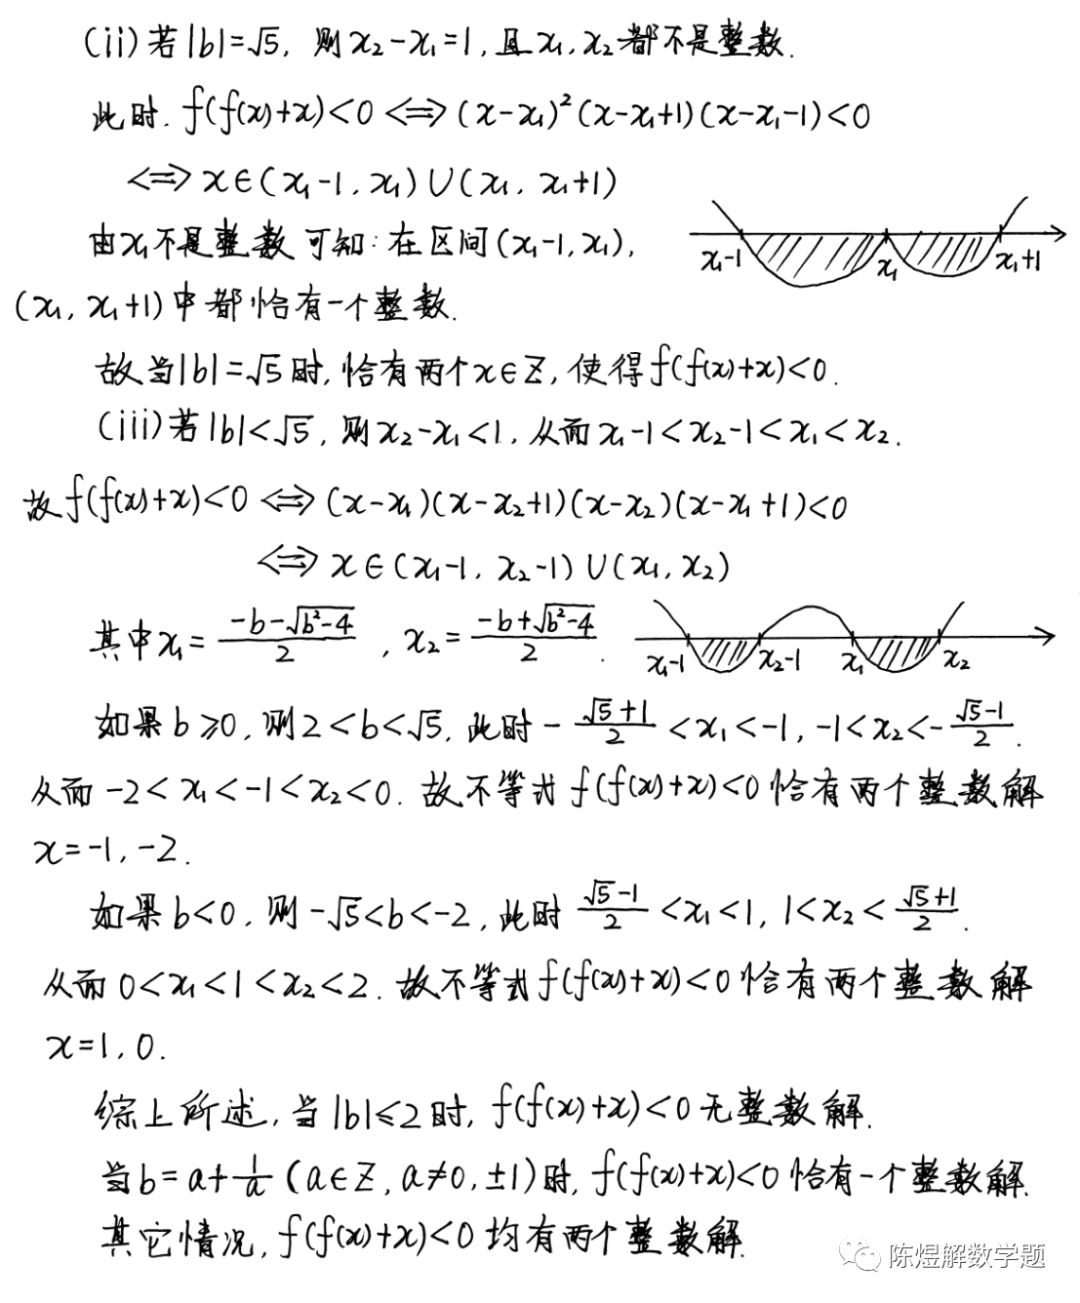 (ii) 若|b|=√5, 则x₂-x₁=1, 且x₁, x₂都不是整数.
此时. f(f(x)+x)<0 ⟺ (x-x₁)²(x-x₁+1)(x-x₁-1)<0
⟺ x∈(x₁-1, x₁)∪(x₁, x₁+1)
由x₁不是整数可知: 在区间(x₁-1, x₁),
x₁-1 x₁ x₁+1
(x₁, x₁+1)中都恰有一个整数.
故当|b|=√5时, 恰有两个x∈Z, 使得f(f(x)+x)<0.
(iii) 若|b|<√5, 则x₂-x₁<1, 从而x₁-1<x₂-1<x₁<x₂.
故f(f(x)+x)<0 ⟺ (x-x₁)(x-x₂+1)(x-x₂)(x-x₁+1)<0
⟺ x∈(x₁-1, x₂-1)∪(x₁, x₂)
其中x₁=(-b-√(b²-4))/2, x₂=(-b+√(b²-4))/2.
x₁-1 x₂-1 x₁ x₂
如果b≥0, 则2<b<√5, 此时-(√5+1)/2<x₁<-1, -1<x₂<-(√5-1)/2.
从而-2<x₁<-1<x₂<0. 故不等式f(f(x)+x)<0恰有两个整数解
x=-1, -2.
如果b<0, 则-√5<b<-2, 此时(√5-1)/2<x₁<1, 1<x₂<(√5+1)/2.
从而0<x₁<1<x₂<2. 故不等式f(f(x)+x)<0恰有两个整数解
x=1, 0.
综上所述, 当|b|≤2时, f(f(x)+x)<0无整数解.
当b=a+1/a (a∈Z, a≠0, ±1)时, f(f(x)+x)<0恰有一个整数解.
其它情况, f(f(x)+x)<0均有两个整数解.
陈煜解数学题